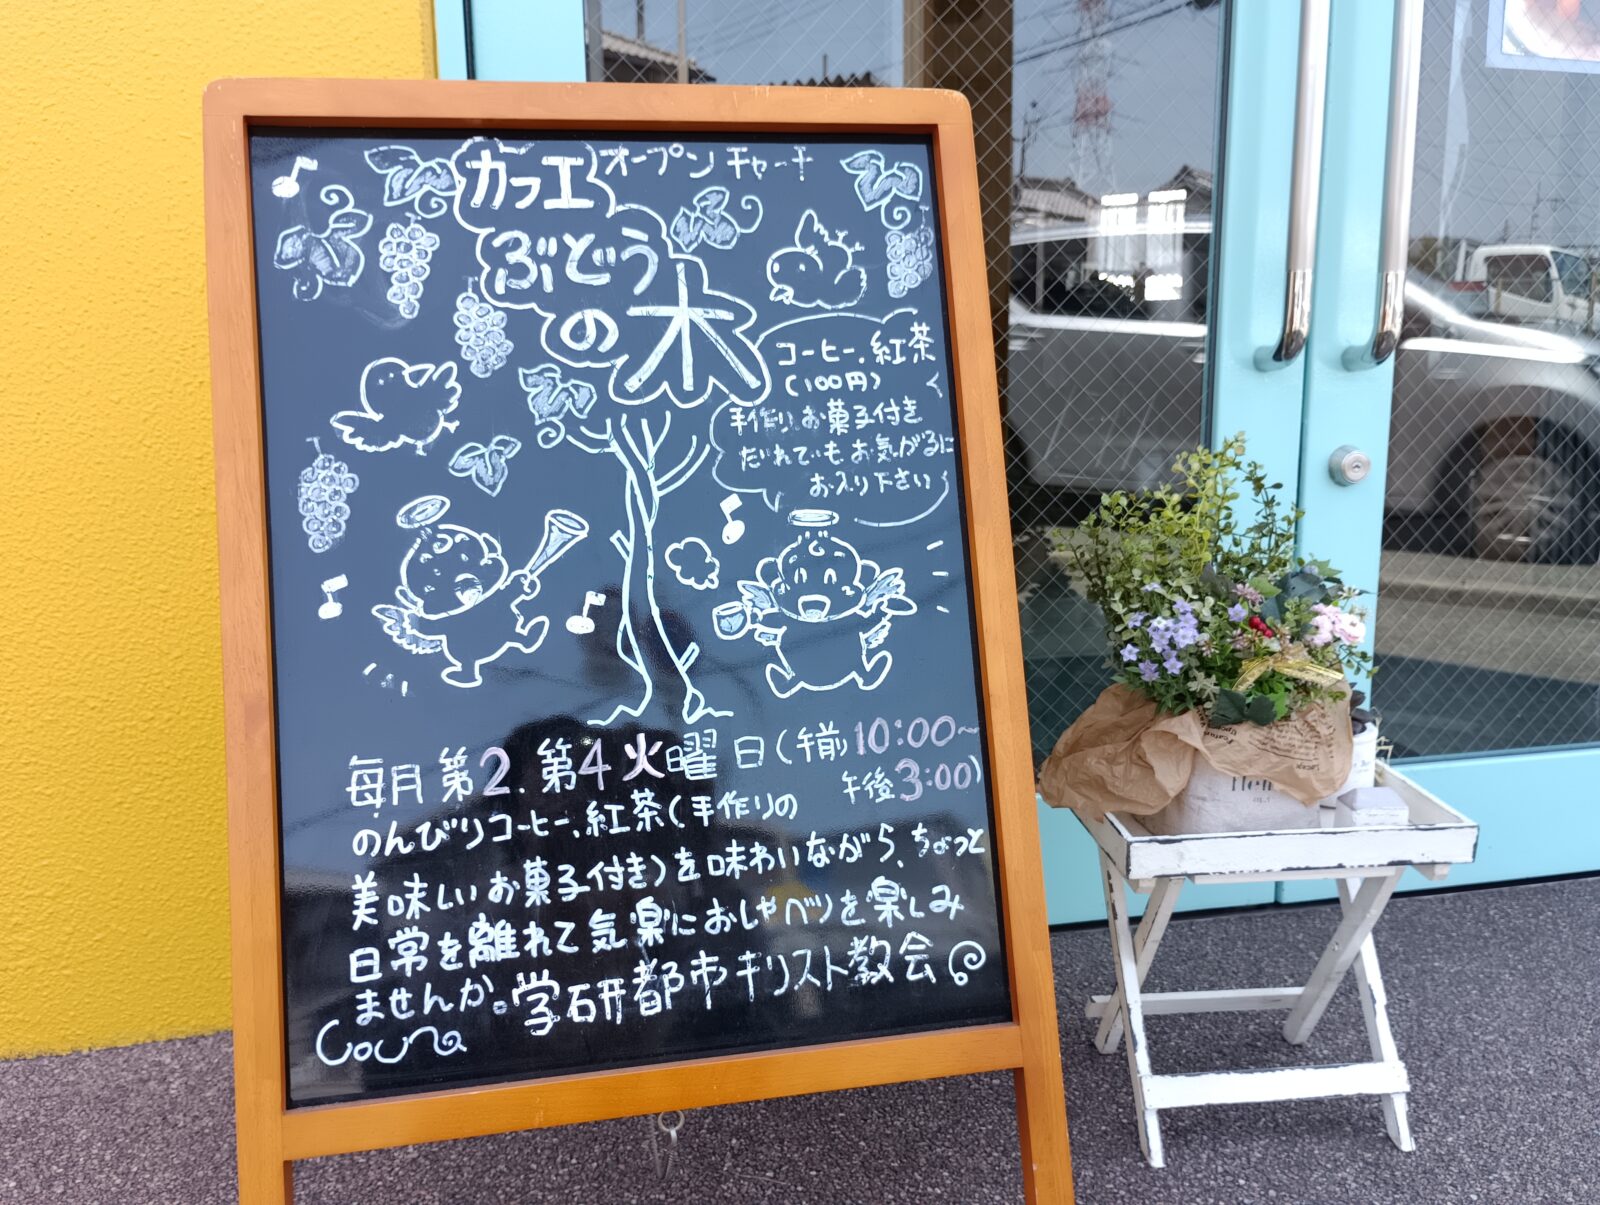 カフェ オープンチャーチ
ぶどう
の木
コーヒー、紅茶
(100円)
手作りお菓子付き
だれでもお気がるに
お入り下さい
毎月第2.第4火曜日(午前10:00〜
午後3:00)
のんびりコーヒー、紅茶(手作りの
美味しいお菓子付き)を味わいながら、ちょっと
日常を離れて気楽におしゃべりを楽しみ
ませんか。学研都市キリスト教会